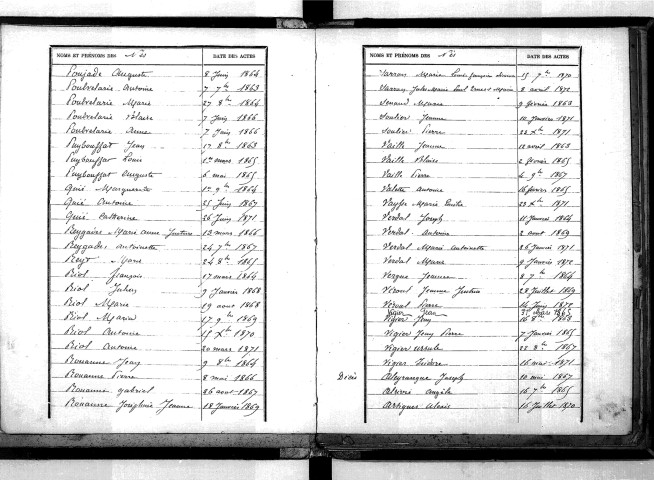 NOMS ET PRÉNOMS DES Nés DATE DES ACTES
Poujade Auguste 8 Juin 1864
Poubrelarie Antoine 7 7bre 1863
Poubrelarie Marie 27 8bre 1864
Poubrelarie 7 Juin 1866
Poubrelarie Anne 7 Juin 1866
Puybouffat Jean 17 8bre 1863
Puybouffat Louis 1er mars 1865
Puybouffat Auguste 6 mai 1865
Quié Marguerite 1er 9bre 1864
Quié Antoine 25 Juin 1867
Quié Catherine 26 Juin 1871
Reygades Marie Anne Justine 13 mars 1866
Reygades Antoinette 24 7bre 1867
Reyt Marie 24 8bre 1865
Riol François 17 mars 1864
Riol Julien 9 Janvier 1868
Riol Marie 19 aout 1868
Riol Maria 17 9bre 1869
Riol Antoine 17 Xbre 1870
Riol Antoine 20 mars 1871
Rouanne Jean 9 8bre 1864
Rouanne Pierre 8 mai 1866
Rouanne Gabriel 26 aout 1867
Rouanne Joséphine Jeanne 18 Janvier 1869
NOMS ET PRÉNOMS DES Nés DATE DES ACTES
Sarran Marie 15 7bre 1870
Sarran Jules Marie Paul Ernest 8 avril 1872
Senaud Marie 9 février 1863
Soulier Jeanne 10 Janvier 1871
Soulier Pierre 22 Xbre 1871
Vaille Jeanne 12 avril 1863
Vaille Blaise 2 février 1865
Vaille Pierre 4 9bre 1867
Valette Antoine 16 février 1865
Vayssre Marie 23 Xbre 1871
Verdal Joseph 11 Janvier 1864
Verdal Antoine 2 aout 1869
Verdal Marie Antoinette 26 Janvier 1871
Verdal Marie 9 Janvier 1872
Vergne Jeanne 8 7bre 1864
Jeanne Justine 28 Juillet 1869
Pierre 14 Juin 1872
Vigier Jean 31 mars 1863
Vigier Jean 16 8bre 1863
Vigier Jean Pierre 7 Janvier 1865
Vigier Ursule 22 8bre 1867
Vigier Isidore 16 mai 1871
Décès Joseph 10 mai 1867
Angèle 16 7bre 1865
Artigues Alexis 16 Juillet 1870